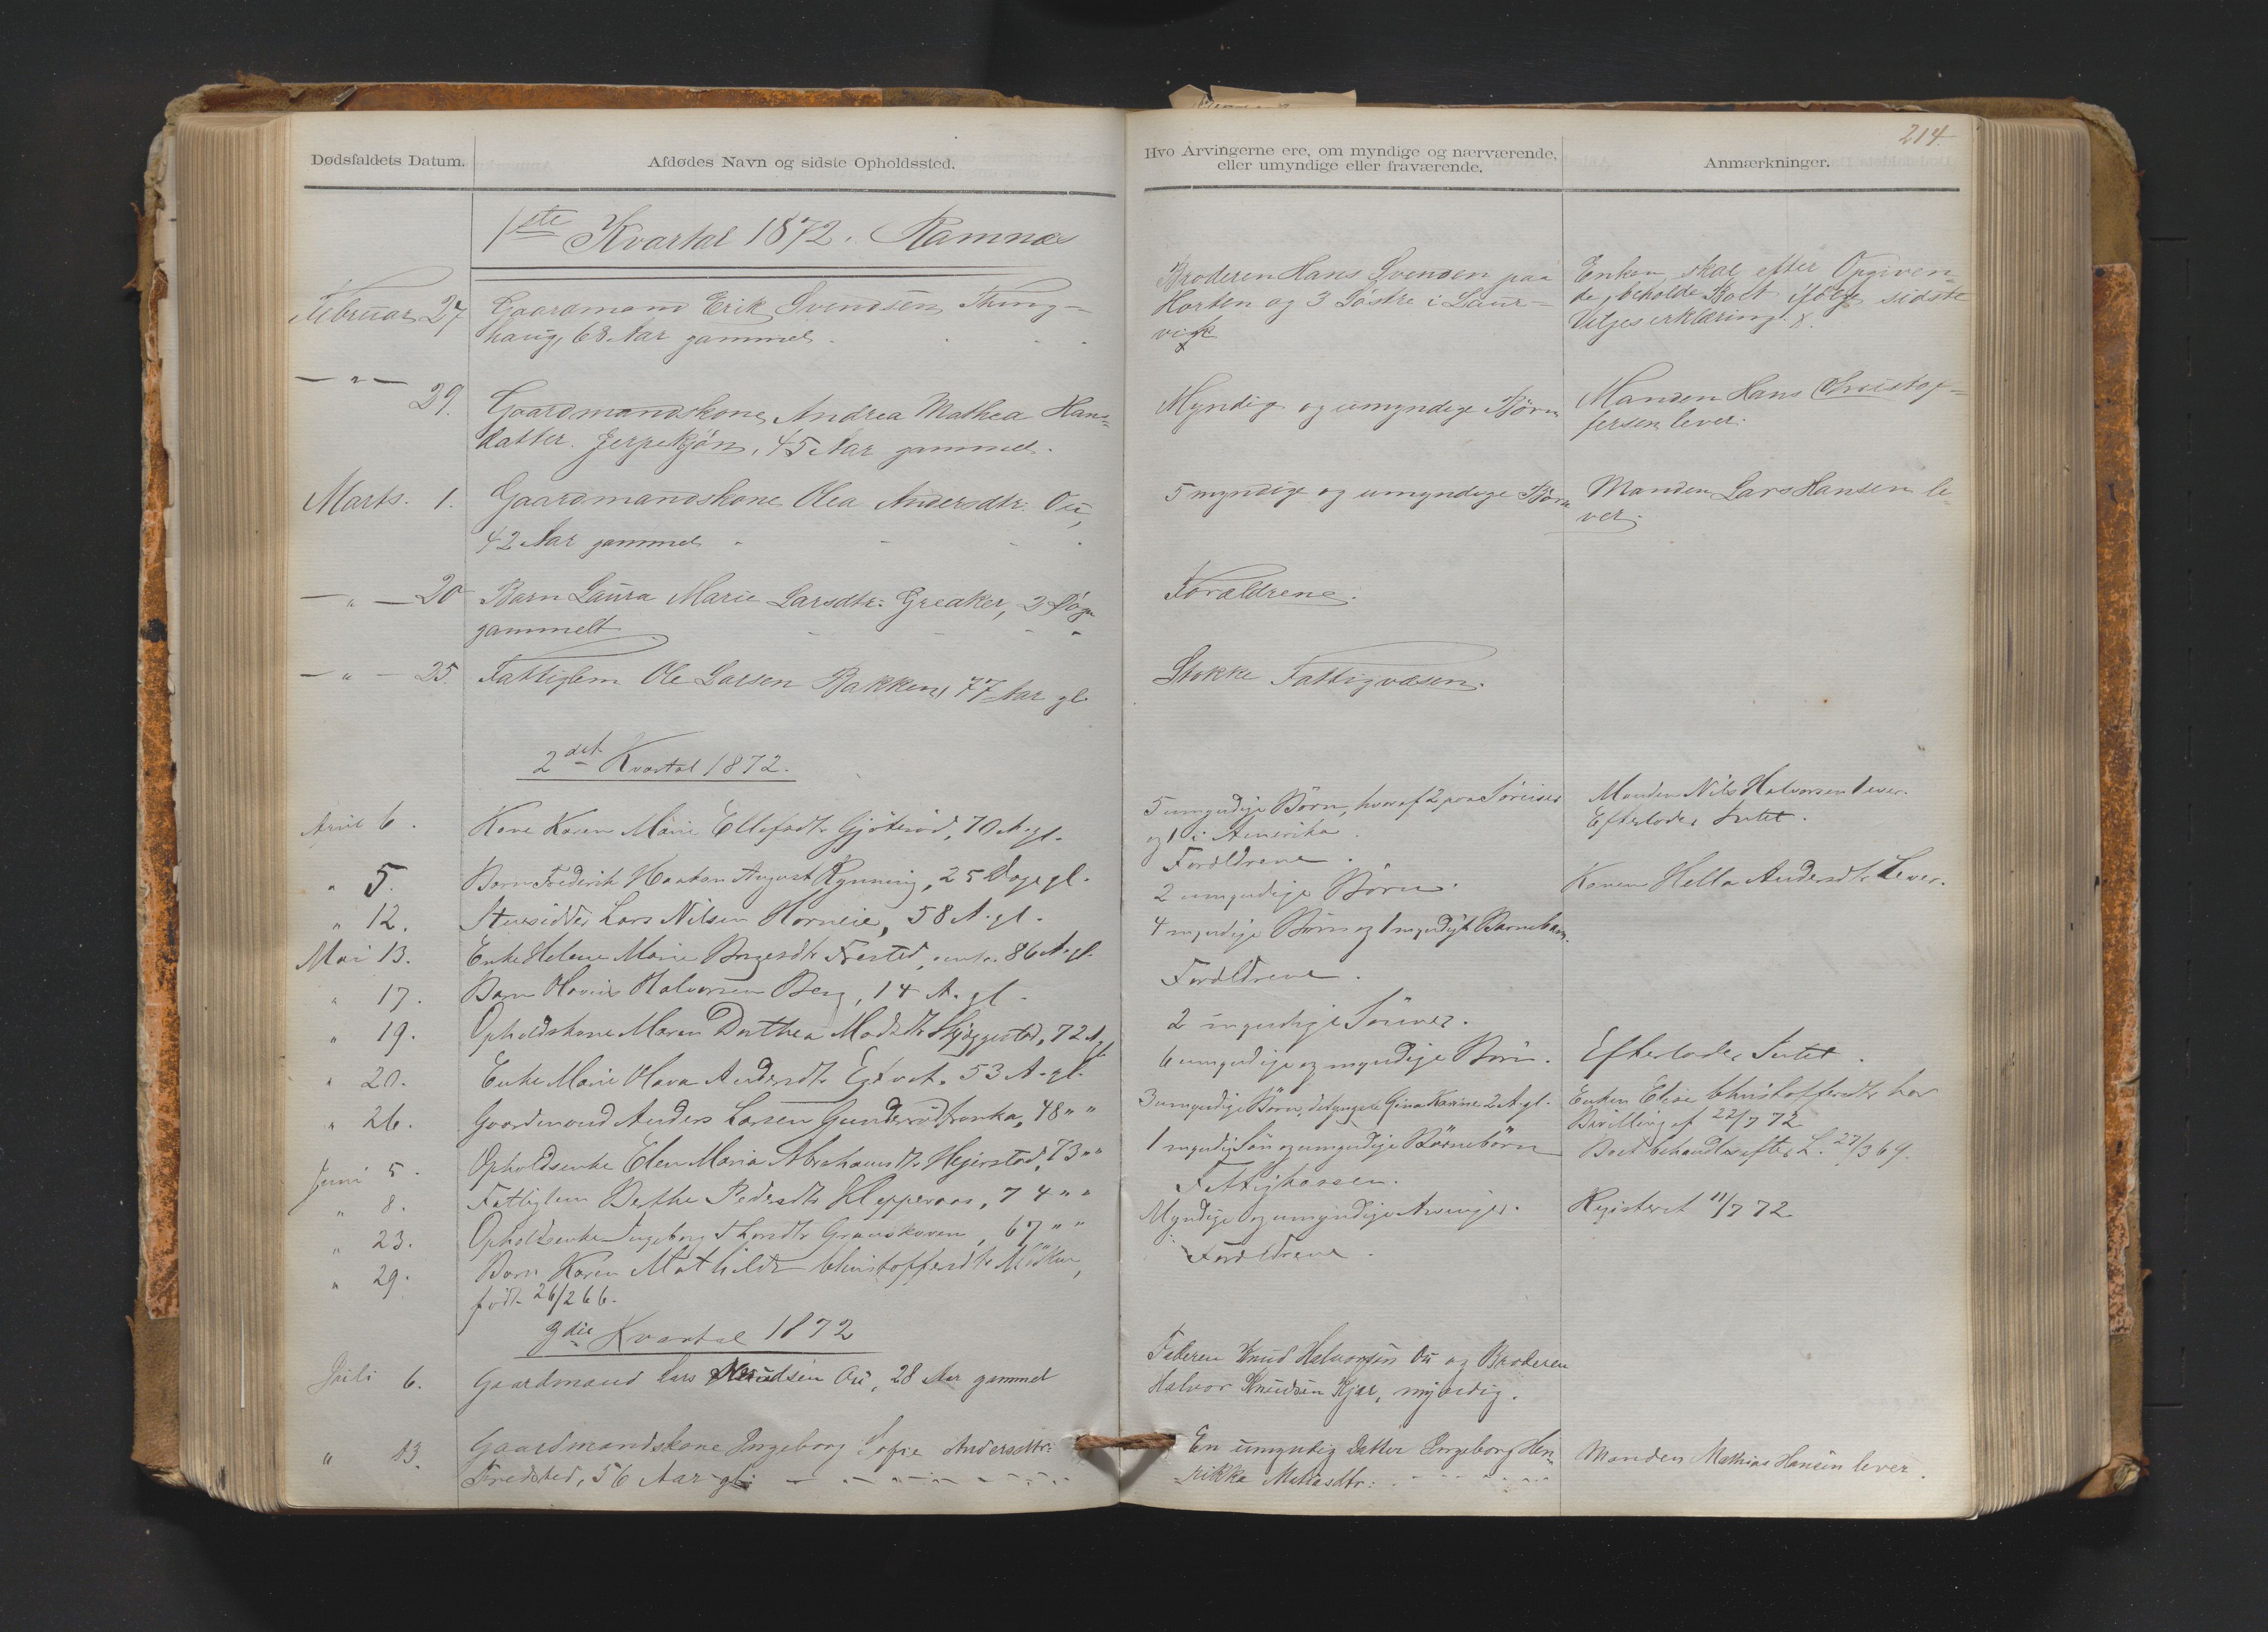 214.
Dødsfaldets Datum.
Afdødes Navn og sidste Opholdssted.
Hvo Arvingerne ere, om myndige og nærværende,
eller umyndige eller fraværende.
Anmærkninger.
1ste Kvartal 1872. Ramnæs
Februar 27
Gaardmand Erik Svendsen Thing-
haug, 68 Aar gammel.
Broderen Hans Svensen paa
Horten og 3 Søstre i Laur-
vigk
Enken skal efter Opgiven-
de beholde Boet ifølge sidste
Viljeserklæring. X.
— " — 29.
Gaardmandskone Andrea Mathea Hans-
datter. Jerpekjøn, 45 Aar gammel.
Myndige og umyndige Børn
Manden Hans Christof-
fersen lever.
Marts. 1.
Gaardmandskone Olea Andersdtr. Ou,
42 Aar gammel
5 myndige og umyndige Børn
Manden Lars Hansen le-
ver.
— " — 20
Barn Laura Marie Larsdtr: Greaker, 2 Døgn
gammelt
Forældrene.
— " — 25.
Fattiglem Ole Larsen Bakken, 77 Aar gl
Stokke Fattigvæsen.
2det Kvartal 1872.
April 6.
Kone Karen Marie Ellefsdtr Gjøterød, 70 A. gl.
5 umyndige Børn, hvoraf 2 paa
og 1 i Amerika.
Manden Nils Halvorsen lever.
Efterlader Intet.
" 5.
Barn Frederik Haakon August Rynning, 25 Dage gl.
Forældrene.
" 12.
Lars Nilsen Horneie, 58 A. gl.
2 umyndige Børn.
Konen Hella Andersdtr Lever.
Mai 13.
Enke Helene Marie Frested, 86 A. gl.
4 myndige Børn og 1 myndigt Barnebarn.
" 17.
Barn Halvorsen Berg, 14 A. gl.
Forældrene.
" 19.
Opholdskone Maren Dorthea Madsdtr Skjæggestad, 72 A. gl
2 myndige Sønner.
" 20.
Enke Marie Olava Andersdtr 53 A. gl.
6 umyndige og myndige Børn.
Efterlader Intet.
" 26.
Gaardmand Anders Larsen 48 " "
3 umyndige Børn, det yngste Gina Karine 2 A. gl.
Enken Elise Christoffersdtr har
Bevilling af 22/7 72
Juni 5.
Opholdsenke Elen Maria Abrahamsdtr Hejerstad, 73 " "
1 myndig Søn og umyndige Børnebørn
Boet behandles efter L. 27/3 69.
" 8.
Fattiglem Berthe Pedersdtr Klepperaas, 74 " "
Fattigkassen.
" 23.
Opholdsenke Ingeborg Thorsdtr Granskoven, 67 " "
Myndige og umyndige Arvinger.
Registeret 11/7 72
" 29.
Barn Karen Mathilde Christoffersdtr
født 26/2 66.
Forældrene.
3die Kvartal 1872
Juli 6.
Gaardmand Lars Knudsen Ou, 28 Aar gammel
Faderen Knud Halvorsen Ou og Broderen
Halvor Knudsen Kjær, myndig.
" 13.
Gaardmandskone Ingeborg Sofie Andersdtr:
Fredsted, 56 Aar gl:
En umyndig Datter Ingeborg Hen-
rikka Matiasdtr:
Manden Mathias Hansen lever.